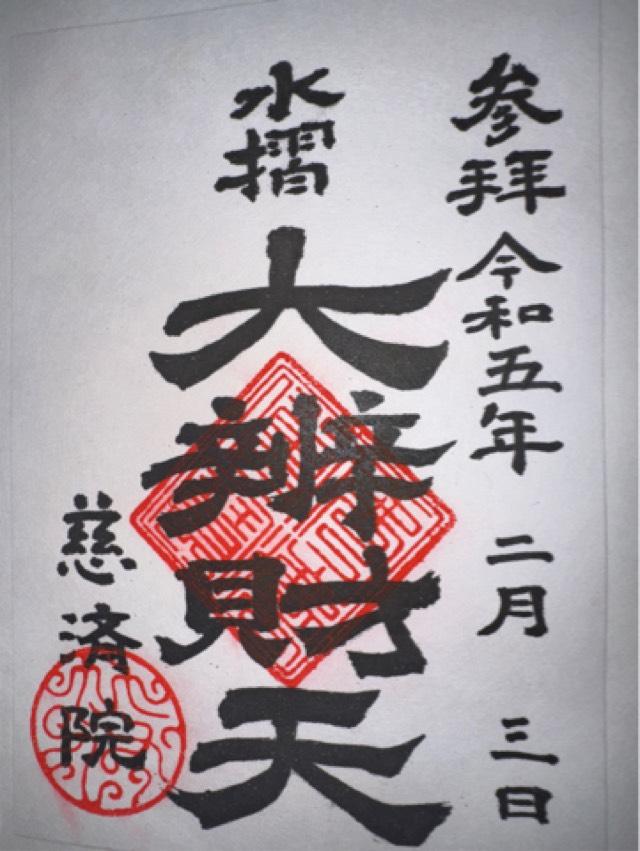 参拝 令和五年 二月 三日
水摺
大辨財天
慈済院